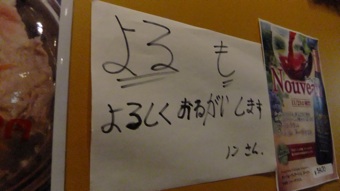 よる も
よろしく おるがいします
ノンさん.
Nouve